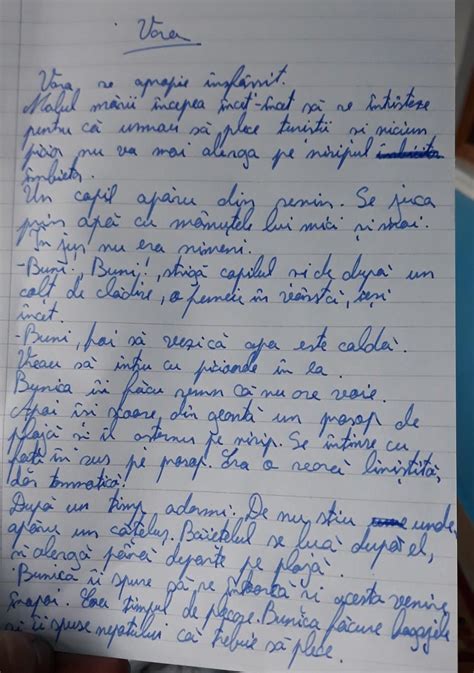 Vara
Vara se apropie însfârsit.
Malul mării începea încet-încet să se întristeze
pentru că urmau să plece turistii si niciun
picior nu va mai alerga pe nisipul
îmbietor.
Un copil apăru din senin. Se juca
prin apă cu mânutele lui mici și moi.
În jur, nu era nimeni.
-Buni!, Buni!, strigă copilul si de după un
colt de clădire, o femeie în vârstă, iesi
încet.
-Buni, hai să vezi că apa este caldă.
Vreau să intru cu picioarele în ea.
Bunica îi făcu semn că nu are voie.
Apoi își scoase, din geantă un prosop de
plajă si îl asternu pe nisip. Se întinse cu
fata în sus pe prosop. Era o seară linistită,
dar tomnatică!
După un timp, adormi. De nu stiu unde,
apăru un cătelus. Băietelul se luă după el,
si alergă până departe pe plajă.
Bunica îi spuse să se întoarcă si acesta venire
înapoi. Era timpul de plecare. Bunica făcuse bagajele
si îi spuse nepotului că trebuie să plece.